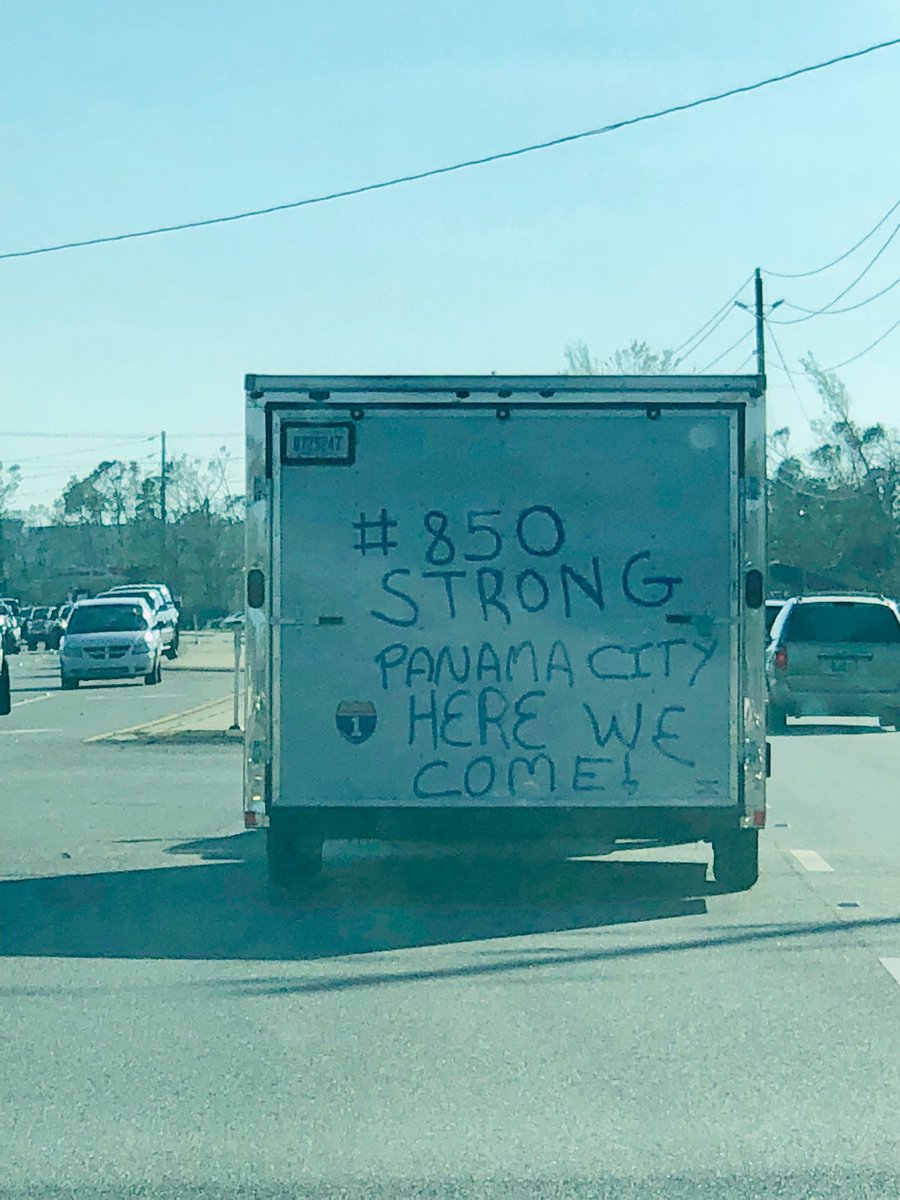 #850
STRONG
PANAMA CITY
HERE WE
COME!
1